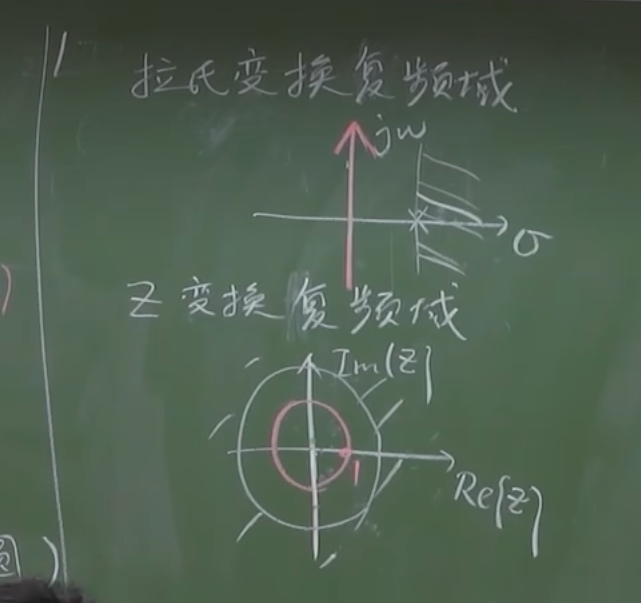 拉氏变换复频域
jω
σ
Z变换复频域
Im[z]
1
Re[z]
圆)